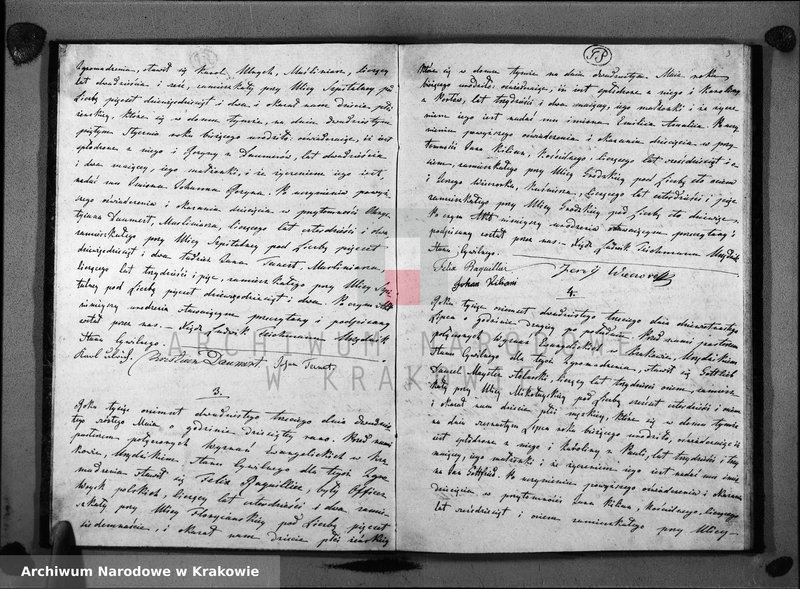 Zgromadzenia, stawił się Karol Ulrych, Muśliniarz, liczący
lat dwadzieścia i sześć, zamieszkały przy Ulicy Szpitalney pod
Liczbą pięcset dziewięćdziesiąt i dwa, i okazał nam dziecię płci
żeńskiey, które się w domu tymże, na dniu dwudziestym
piątym Stycznia roku bieżącego urodziło; oświadczając, iż jest
spłodzone z niego i Rozyny z Daumertów, lat dwadzieścia
i dwa mający, jego małżonki, i że życzeniem jego jest,
nadać mu Imiona Johanna Rozyna. Po uczynieniu powyż-
szego oświadczenia i okazania dziecięcia w przytomności Chry-
styana Daumert, Muśliniarza, liczącego lat czterdzieści i dwa
zamieszkałego przy Ulicy Szpitalney pod Liczbą pięcset
dziewięćdziesiąt i dwa, tudzież Jana Teinert, Muśliniarza,
liczącego lat trzydzieści i pięć, zamieszkałego przy Ulicy Szpi-
talney pod Liczbą pięcset dziewięćdziesiąt i dwa. Po czym Akt
niniejszy urodzenia stawającym przeczytany i podpisany
został przez nas. — Xiądz Ludwik Teichmann Urzędnik
Stanu Cywilnego.
Karl Ulrich Christian Daumert
3.
Roku tysiąc ośmset dwudziestego trzeciego dnia dwudzie-
stego szóstego Maia o godzinie dziesiątey rano. Przed nami
pastorem połączonych Wyznań Ewangelickich w Kra-
kowie, Urzędnikiem Stanu Cywilnego dla tegoż Zgro-
madzenia stawił się Felix Paquillier, były Officer
Woysk polskich, liczący lat czterdzieści i dwa zamie-
szkały przy Ulicy Floryańskiey pod Liczbą pięcset
siedemnaście, i okazał nam dziecię płci żeńskiey
3
które się w domu tymże na dniu dwudziestym Maia roku
bieżącego urodziło, oświadczając, iż jest spłodzone z niego i Karoliny
lat trzydzieści i dwa mający, jego małżonki i że życze-
niem jego jest nadać mu imiona Emilia Amalia. Po uczy-
nieniu powyższego oświadczenia i okazania dziecięcia w przy-
tomności Jana Kilian, Kościelnego, liczącego lat sześćdziesiąt i o-
śm, zamieszkałego przy Ulicy Grodzkiey pod Liczbą sto osiem
i Jerzego liczącego lat czterdzieści i pięć
zamieszkałego przy Ulicy Grodzkiey pod Liczbą sto dziewięć.
Po czym Akt niniejszy urodzenia stawającym przeczytany i
podpisany został przez nas. — Xiądz Ludwik Teichmann Urzędnik
Stanu Cywilnego.
Felix Paquillier
Johan Kilian
4.
Roku tysiąc ośmset dwudziestego trzeciego dnia dwunastego
Lipca o godzinie drugiey po południu. Przed nami pastorem
połączonych Wyznań Ewangelickich w Krakowie, Urzędnikiem
Stanu Cywilnego dla tegoż Zgromadzenia, stawił się Gottlieb
Majster stolarski, liczący lat trzydzieści ośm, zamiesz-
kały przy Ulicy Mikołayskiey pod Liczbą sześcset czterdzieści i osiem
i okazał nam dziecię płci męskiey, które się w domu tymże
na dniu Lipca roku bieżącego urodziło, oświadczając iż
jest spłodzone z niego i Karoliny z lat trzydzieści i trzy
mający, jego małżonki, i że życzeniem jego jest nadać mu imie-
na Gottfried. Po uczynieniu powyższego oświadczenia i okazania
dziecięcia, w przytomności Jana Kilian, Kościelnego, liczącego
lat sześćdziesiąt i ośm zamieszkałego przy Ulicy
ARCHIWUM NARODOWE
W KRAKOWIE
Archiwum Narodowe w Krakowie